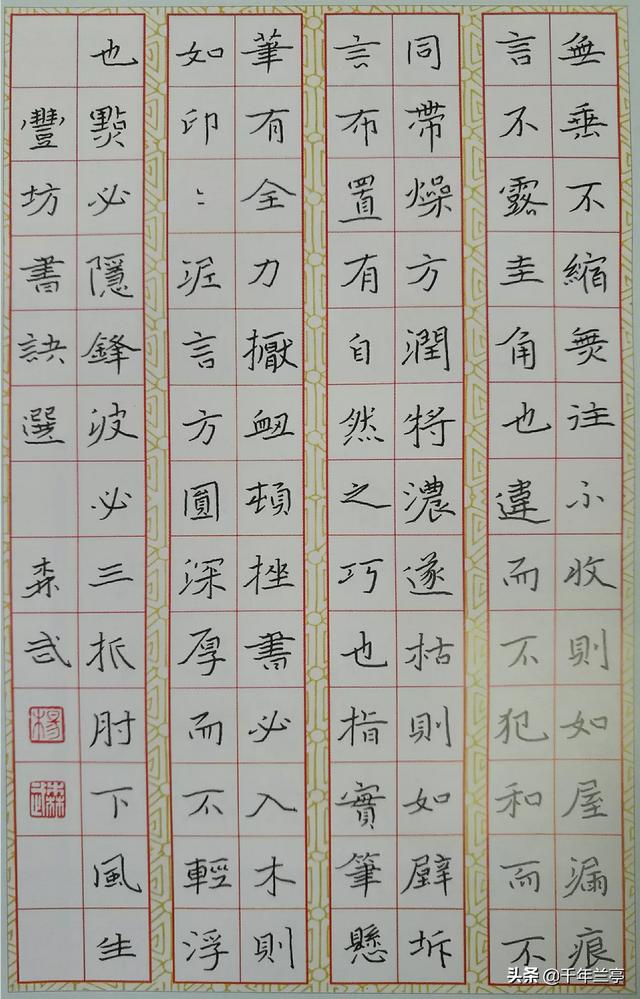 無垂不縮無往不收則如屋漏痕
言不露圭角也違而不犯和而不
同帶燥方潤將濃遂枯則如壁坼
言布置有自然之巧也指實筆懸
筆有全力擫衄頓挫書必入木則
如印〻泥言方圓深厚而不輕浮
也點必隱鋒波必三折肘下風生
豐坊書訣選 森武
楊
头条 @千年兰亭